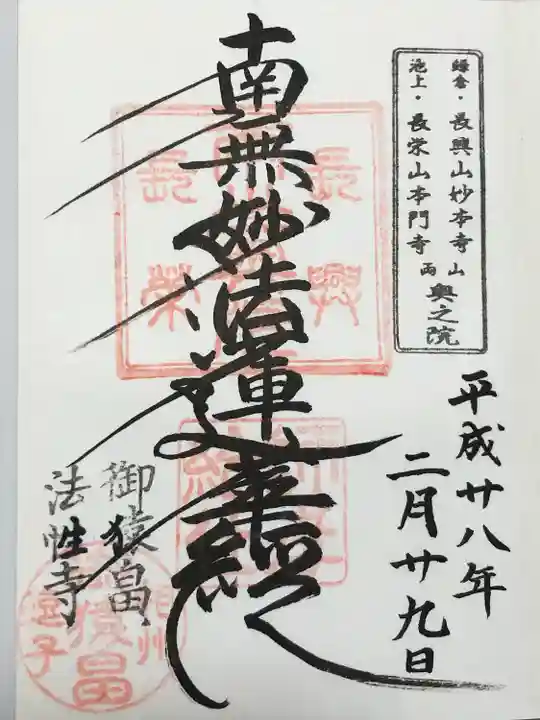 鎌倉・長興山妙本寺
池上・長栄山本門寺
両山奥之院
平成廿八年
二月廿九日
南無妙法蓮華経
御猿畠
法性寺
長興
長栄
相州
御猿畠
逗子